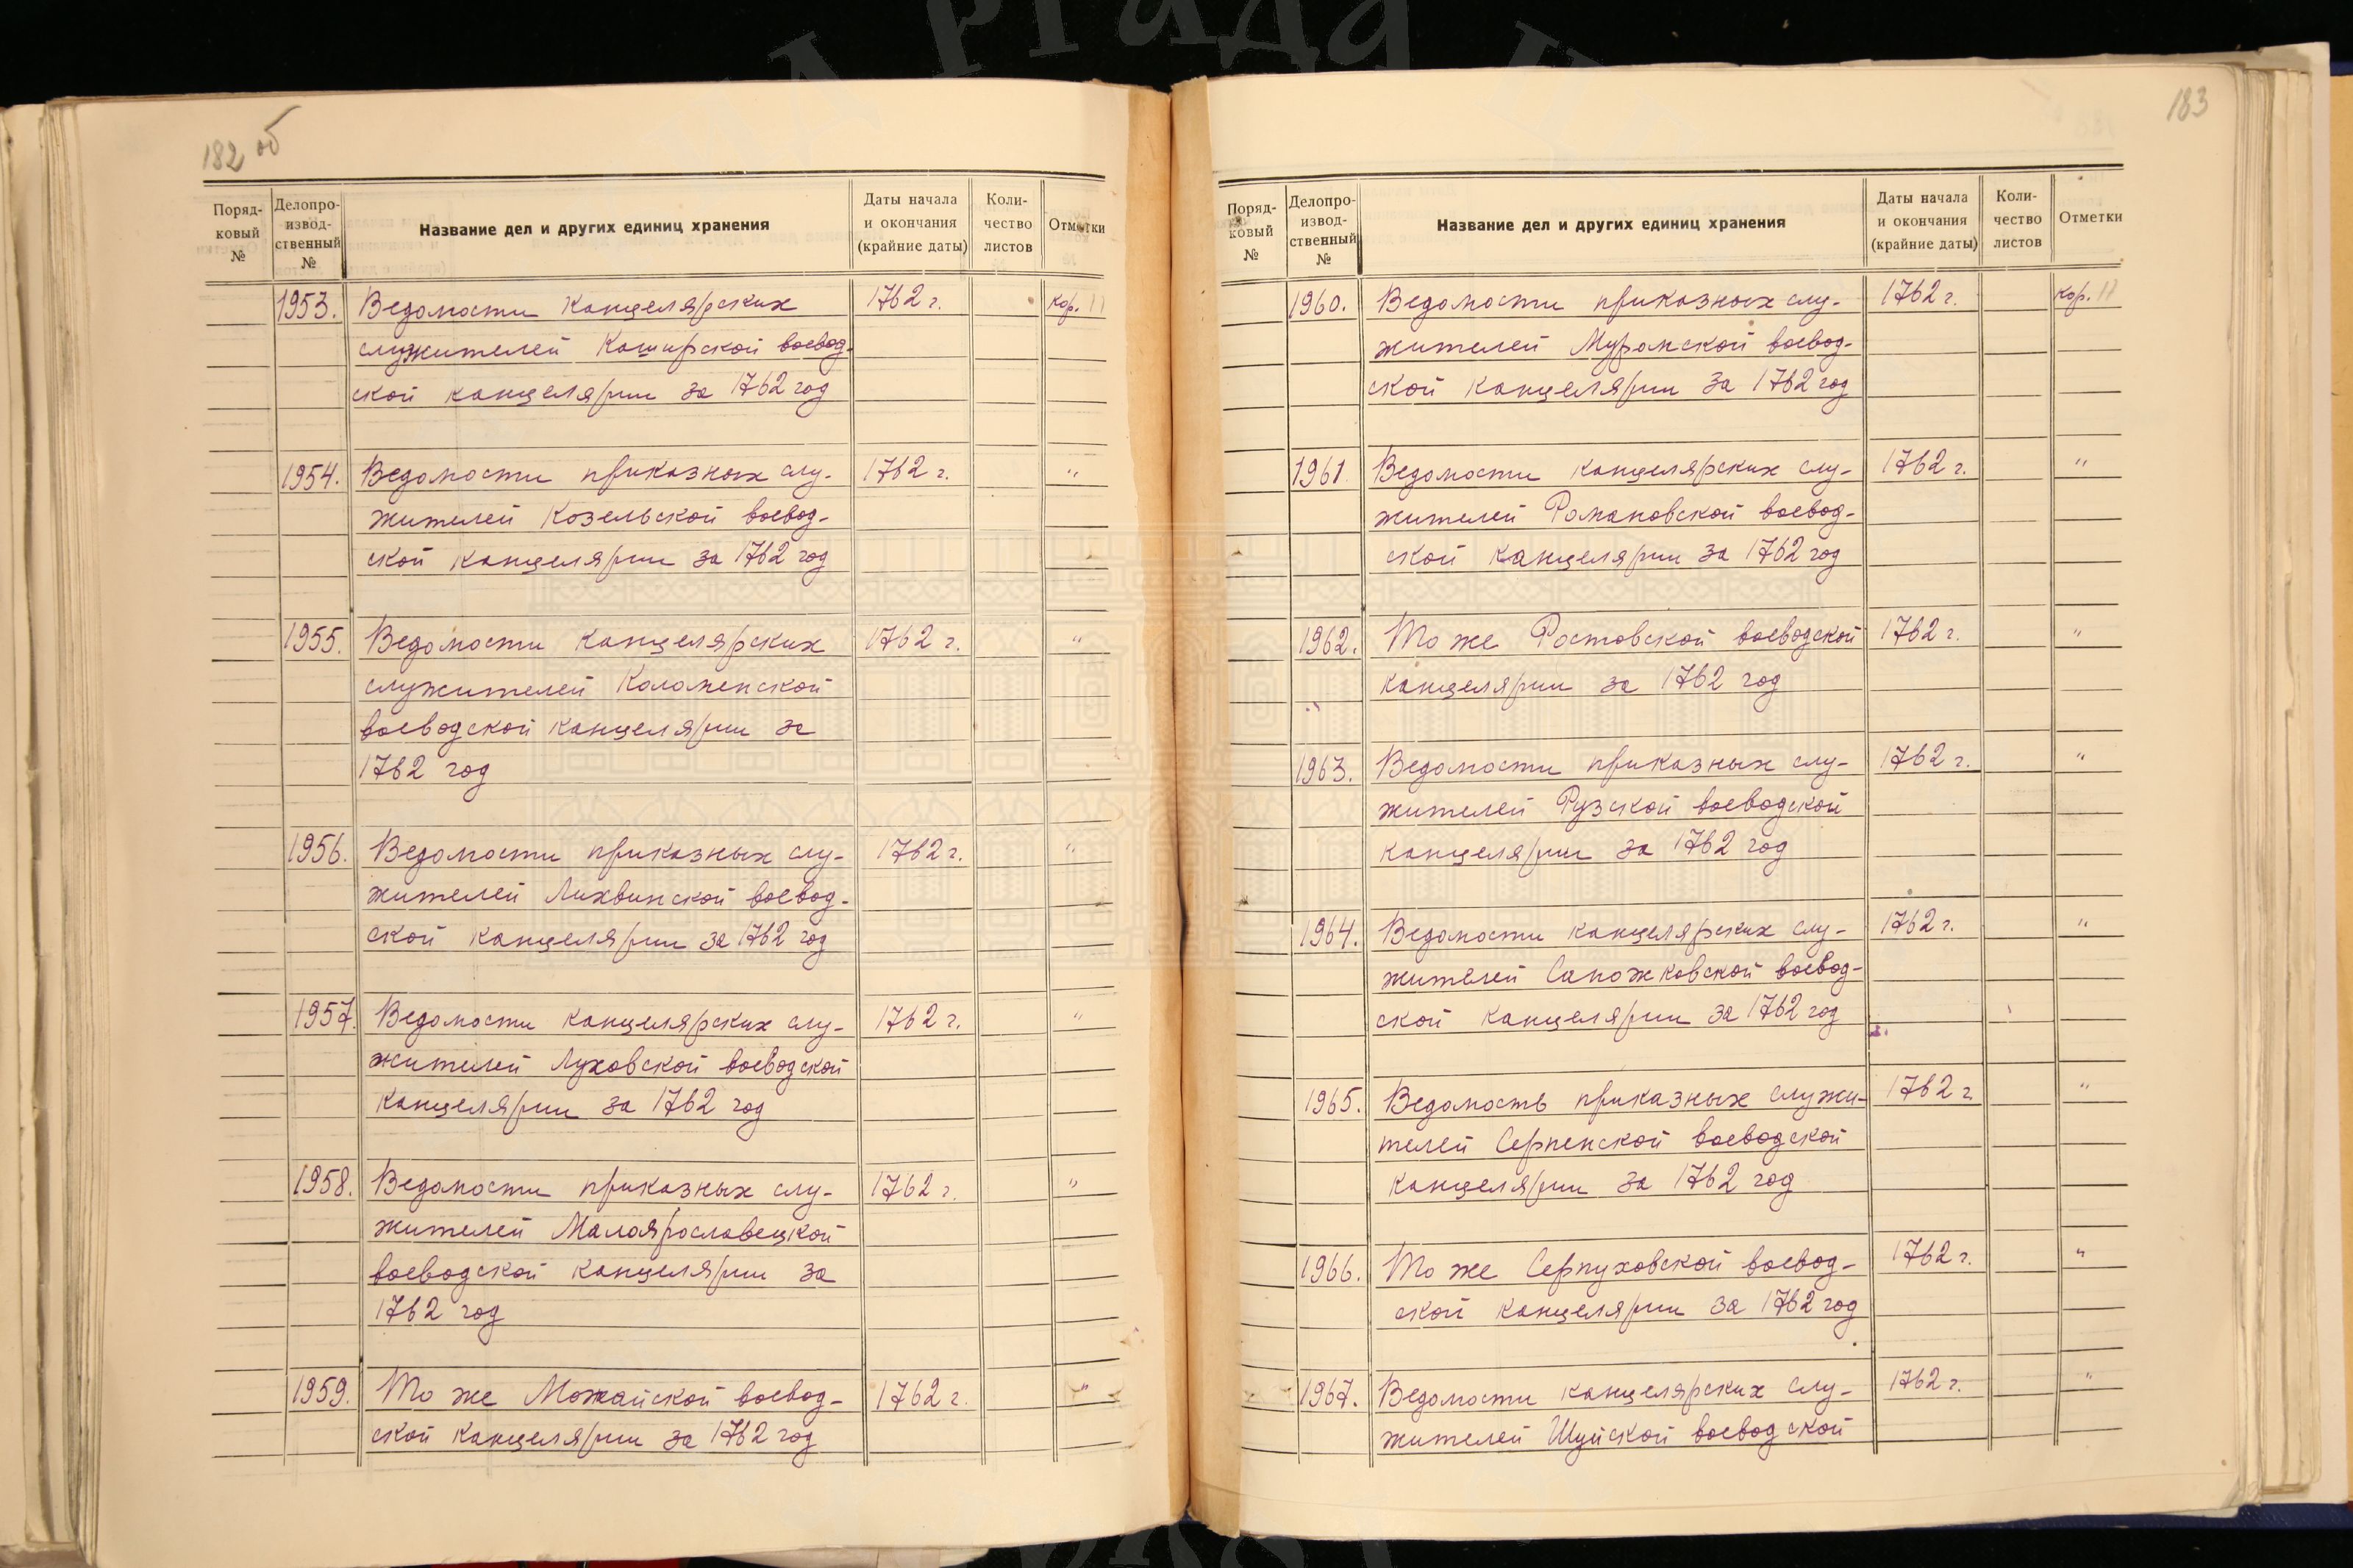 182 об
Поряд-
ковый
№
Делопро-
извод-
ственный
№
Название дел и других единиц хранения
Даты начала
и окончания
(крайние даты)
Коли-
чество
листов
Отметки
1953. Ведомости канцелярских 1762 г. кор. 11
служителей Каширской воевод-
ской канцелярии за 1762 год
1954. Ведомости приказных слу- 1762 г. "
жителей Козельской воевод-
ской канцелярии за 1762 год
1955. Ведомости канцелярских 1762 г. "
служителей Коломенской
воеводской канцелярии за
1762 год
1956. Ведомости приказных слу- 1762 г. "
жителей Лихвинской воевод-
ской канцелярии за 1762 год
1957. Ведомости канцелярских слу- 1762 г. "
жителей Луховской воеводской
канцелярии за 1762 год
1958. Ведомости приказных слу- 1762 г. "
жителей Малоярославецкой
воеводской канцелярии за
1762 год
1959. То же Можайской воевод- 1762 г. "
ской канцелярии за 1762 год
183
Поряд-
ковый
№
Делопро-
извод-
ственный
№
Название дел и других единиц хранения
Даты начала
и окончания
(крайние даты)
Коли-
чество
листов
Отметки
1960. Ведомости приказных слу- 1762 г. кор. 11
жителей Муромской воевод-
ской канцелярии за 1762 год
1961 Ведомости канцелярских слу- 1762 г. "
жителей Романовской воевод-
ской канцелярии за 1762 год
1962. То же Ростовской воеводской 1762 г. "
канцелярии за 1762 год
1963. Ведомости приказных слу- 1762 г. "
жителей Рузской воеводской
канцелярии за 1762 год
1964. Ведомости канцелярских слу- 1762 г. "
жителей Сапожковской воевод-
ской канцелярии за 1762 год
1965. Ведомость приказных служи- 1762 г. "
телей Серпенской воеводской
канцелярии за 1762 год
1966. То же Серпуховской воевод- 1762 г. "
ской канцелярии за 1762 год
1967. Ведомости канцелярских слу- 1762 г. "
жителей Шуйской воеводской